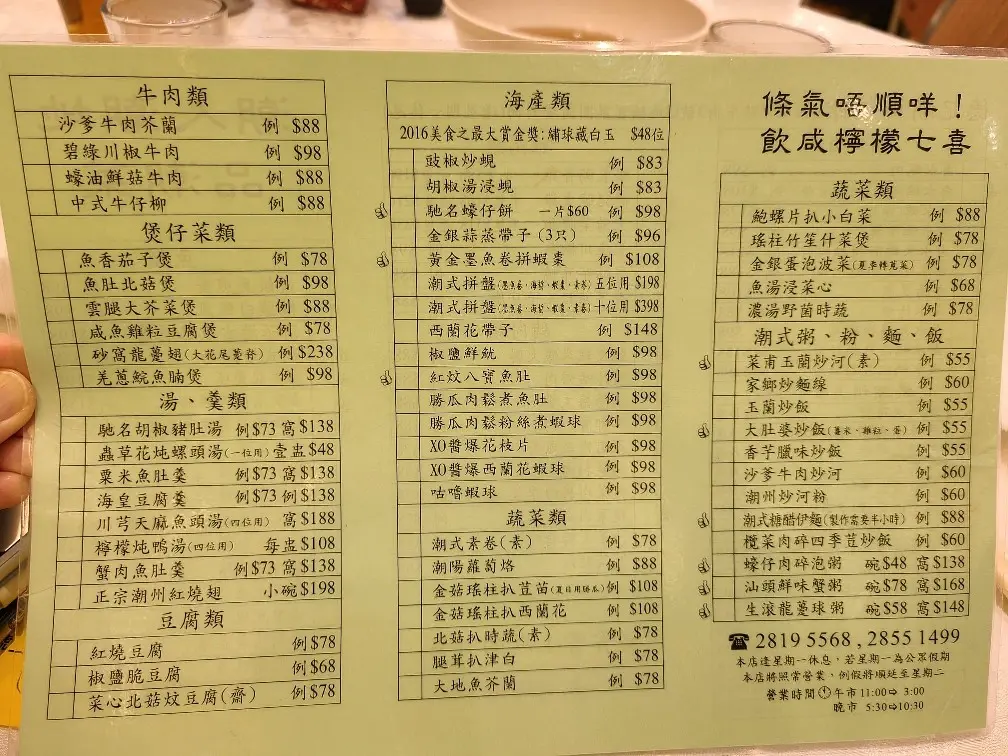 牛肉類
沙爹牛肉芥蘭 例 $88
碧綠川椒牛肉 例 $98
蠔油鮮菇牛肉 例 $88
中式牛仔柳 例 $88
煲仔菜類
魚香茄子煲 例 $78
魚肚北菇煲 例 $98
雲腿大芥菜煲 例 $88
咸魚雞粒豆腐煲 例 $78
砂窩龍躉翅(大花尾躉脊) 例 $238
羌蔥鯇魚腩煲 例 $98
湯、羹類
馳名胡椒豬肚湯 例$73 窩$138
蟲草花炖螺頭湯(一位用)壹盅$48
粟米魚肚羹 例$73 窩$138
海皇豆腐羹 例$73 例$138
川芎天麻魚頭湯(四位用) 窩$188
檸檬炖鴨湯(四位用) 每盅$108
蟹肉魚肚羹 例$73 窩$138
正宗潮州紅燒翅 小碗$198
豆腐類
紅燒豆腐 例$78
椒鹽脆豆腐 例$68
菜心北菇炆豆腐(齋) 例$78
海產類
2016美食之最大賞金獎:繡球藏白玉 $48位
豉椒炒蜆 例 $83
胡椒湯浸蜆 例 $83
馳名蠔仔餅 一片$60 例 $98
金銀蒜蒸帶子(3只) 例 $96
黃金墨魚卷拼蝦棗 例 $108
潮式拼盤 五位用 $198
潮式拼盤 十位用 $398
西蘭花帶子 例 $148
椒鹽鮮魷 例 $98
紅炆八寶魚肚 例 $98
勝瓜肉鬆煮魚肚 例 $98
勝瓜肉鬆粉絲煮蝦球 例 $98
XO醬爆花枝片 例 $98
XO醬爆西蘭花蝦球 例 $98
咕嚕蝦球 例 $98
蔬菜類
潮式素卷(素) 例 $78
潮陽蘿蔔烙 例 $88
金菇瑤柱扒荳苗(夏日用勝瓜)例 $108
金菇瑤柱扒西蘭花 例 $108
北菇扒時蔬(素) 例 $78
腿茸扒津白 例 $78
大地魚芥蘭 例 $78
條氣唔順咩！
飲咸檸檬七喜
蔬菜類
鮑螺片扒小白菜 例 $88
瑤柱竹笙什菜煲 例 $78
金銀蛋泡波菜(夏季轉莧菜) 例 $78
魚湯浸菜心 例 $68
濃湯野菌時蔬 例 $78
潮式粥、粉、麵、飯
菜甫玉蘭炒河(素) 例 $55
家鄉炒麵線 例 $60
玉蘭炒飯 例 $55
大肚婆炒飯(薯米、雞粒、蛋) 例 $55
香芋臘味炒飯 例 $55
沙爹牛肉炒河 例 $60
潮州炒河粉 例 $60
潮式糖醋伊麵(製作需要半小時) 例 $88
欖菜肉碎四季荳炒飯 例 $60
蠔仔肉碎泡粥 碗$48 窩$138
汕頭鮮味蟹粥 碗$78 窩$168
生滾龍躉球粥 碗$58 窩$148
☎2819 5568 , 2855 1499
本店逢星期一休息，若星期一為公眾假期
本店將照常營業，例假將順延至星期二
營業時間 午市 11:00⇨ 3:00
晚市 5:30⇨10:30